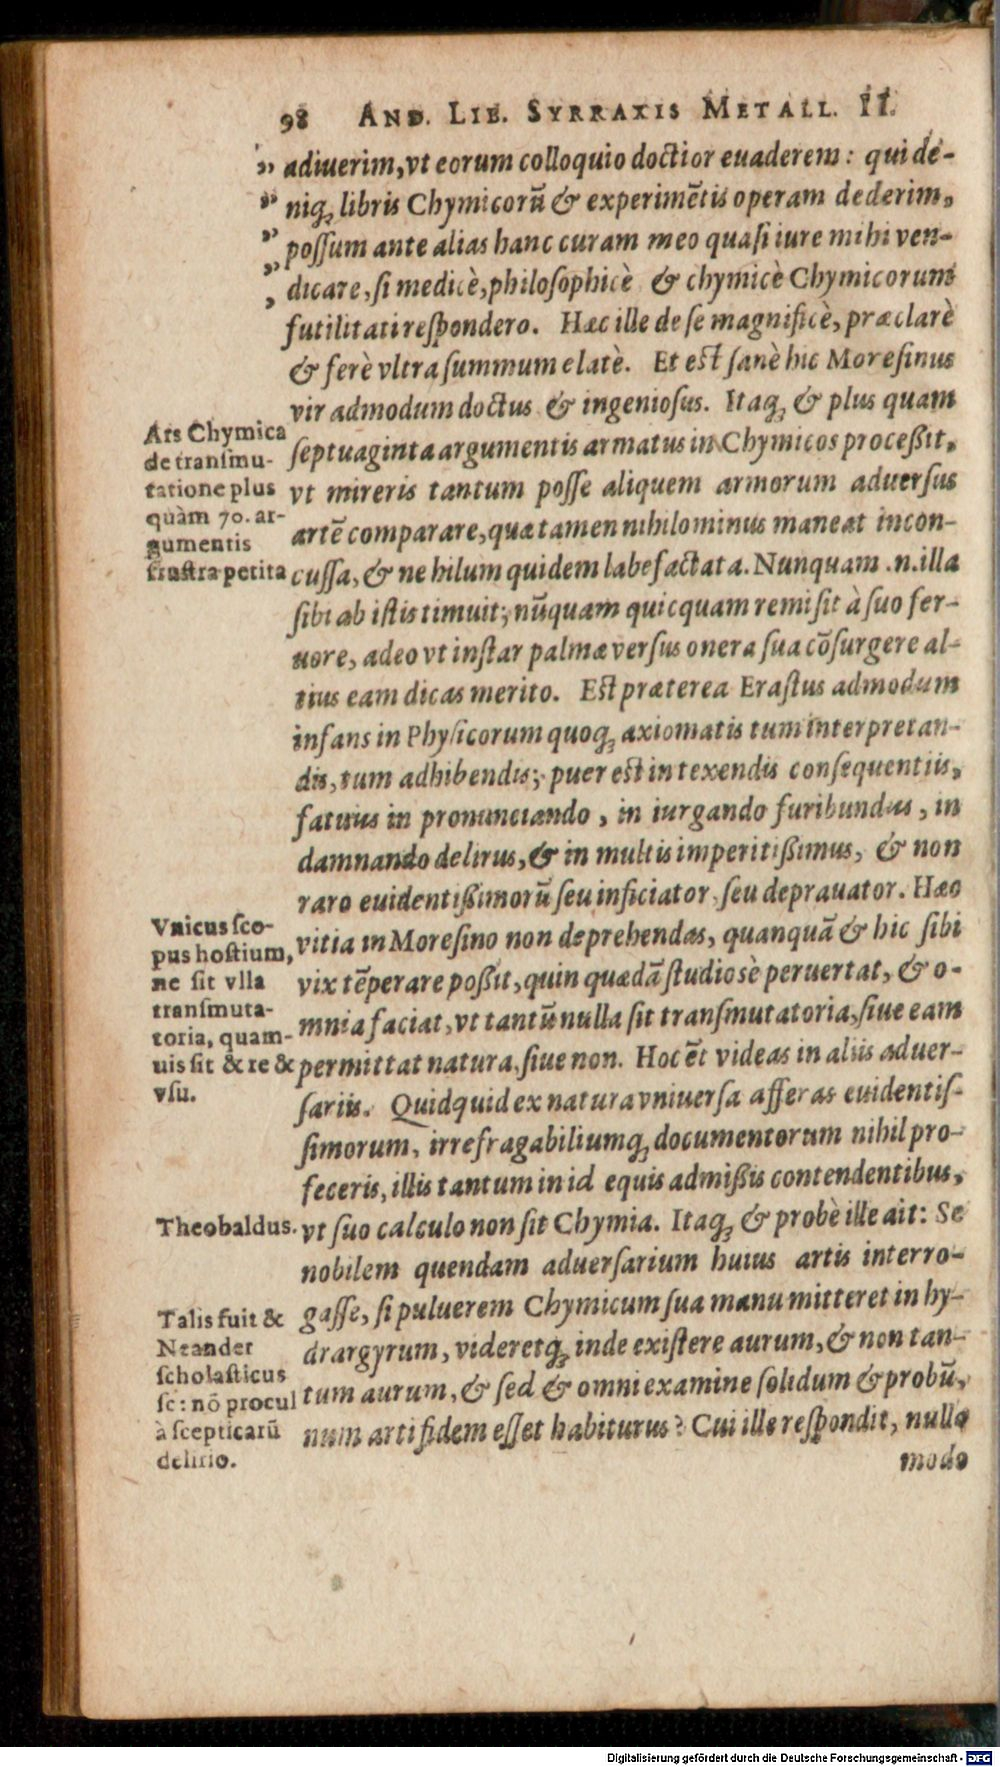 98 AND. LIB. SYRRAXIS METALL. II.
„ adiuerim, vt eorum colloquio doctior euaderem: qui de-
„ niq; libris Chymicorũ & experimẽtis operam dederim,
„ possum ante alias hanc curam meo quasi iure mihi ven-
„ dicare, si medicè, philosophicè & chymicè Chymicorum
futilitati respondero. Hæc ille de se magnificè, præclarè
& ferè vltra summum elatè. Et est sanè hic Moresinus
vir admodum doctus & ingeniosus. Itaq; & plus quam
septuaginta argumentis armatus in Chymicos proceßit,
vt mireris tantum posse aliquem armorum aduersus
artẽ comparare, quæ tamen nihilominus maneat incon-
cussa, & ne hilum quidem labefactata. Nunquam .n. illa
sibi ab istis timuit; nũquam quicquam remisit à suo fer-
uore, adeo vt instar palmæ versus onera sua cõsurgere al-
tius eam dicas merito. Est præterea Erastus admodum
infans in Physicorum quoq; axiomatis tum interpretan-
dis, tum adhibendis; puer est in texendis consequentiis,
fatuus in pronunciando, in iurgando furibundus, in
damnando delirus, & in multis imperitißimus, & non
raro euidentißimorũ seu inficiator, seu deprauator. Hæc
vitia in Moresino non deprehendas, quanquã & hic sibi
vix tẽperare poßit, quin quædã studiosè peruertat, & o-
mnia faciat, vt tantũ nulla sit transmutatoria, siue eam
permittat natura, siue non. Hoc ẽt videas in aliis aduer-
sariis. Quidquid ex natura vniuersa afferas euidentis-
simorum, irrefragabiliumq; documentorum nihil pro-
feceris, illis tantum in id equis admißis contendentibus,
vt suo calculo non sit Chymia. Itaq; & probè ille ait: Se
nobilem quendam aduersarium huius artis interro-
gasse, si puluerem Chymicum sua manu mitteret in hy-
drargyrum, videretq; inde existere aurum, & non tan-
tum aurum, & sed & omni examine solidum & probũ,
num arti fidem esset habiturus? Cui ille respondit, nullo
modo
Ars Chymica
de transmu-
tatione plus
quàm 70. ar-
gumentis
frustra petita
Vnicus sco-
pus hostium,
ne sit vlla
transmuta-
toria, quam-
uis sit & re &
vsu.
Theobaldus.
Talis fuit &
Neander
scholasticus
sc: nõ procul
à scepticarũ
delirio.
Digitalisierung gefördert durch die Deutsche Forschungsgemeinschaft - DFG